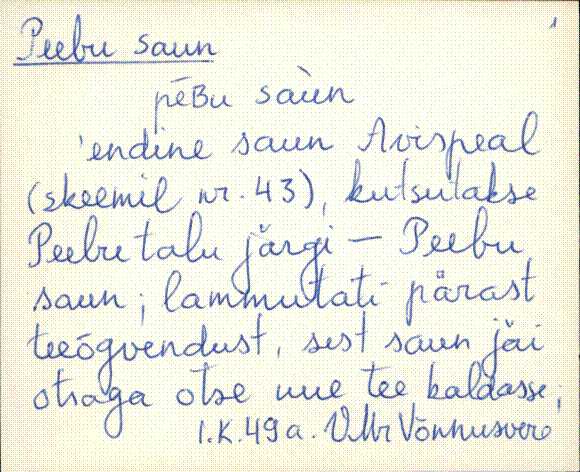 1
Peebu saun
pēʙu saùn
'endine saun Avispeal
(skeemil nr. 43), kutsutakse
Peebu talu järgi — Peebu
saun; lammutati pärast
teeõgvendust, sest saun jäi
otsaga otse uue tee kaldasse,
I.K. 49 a. V.Mr Võnnusvere